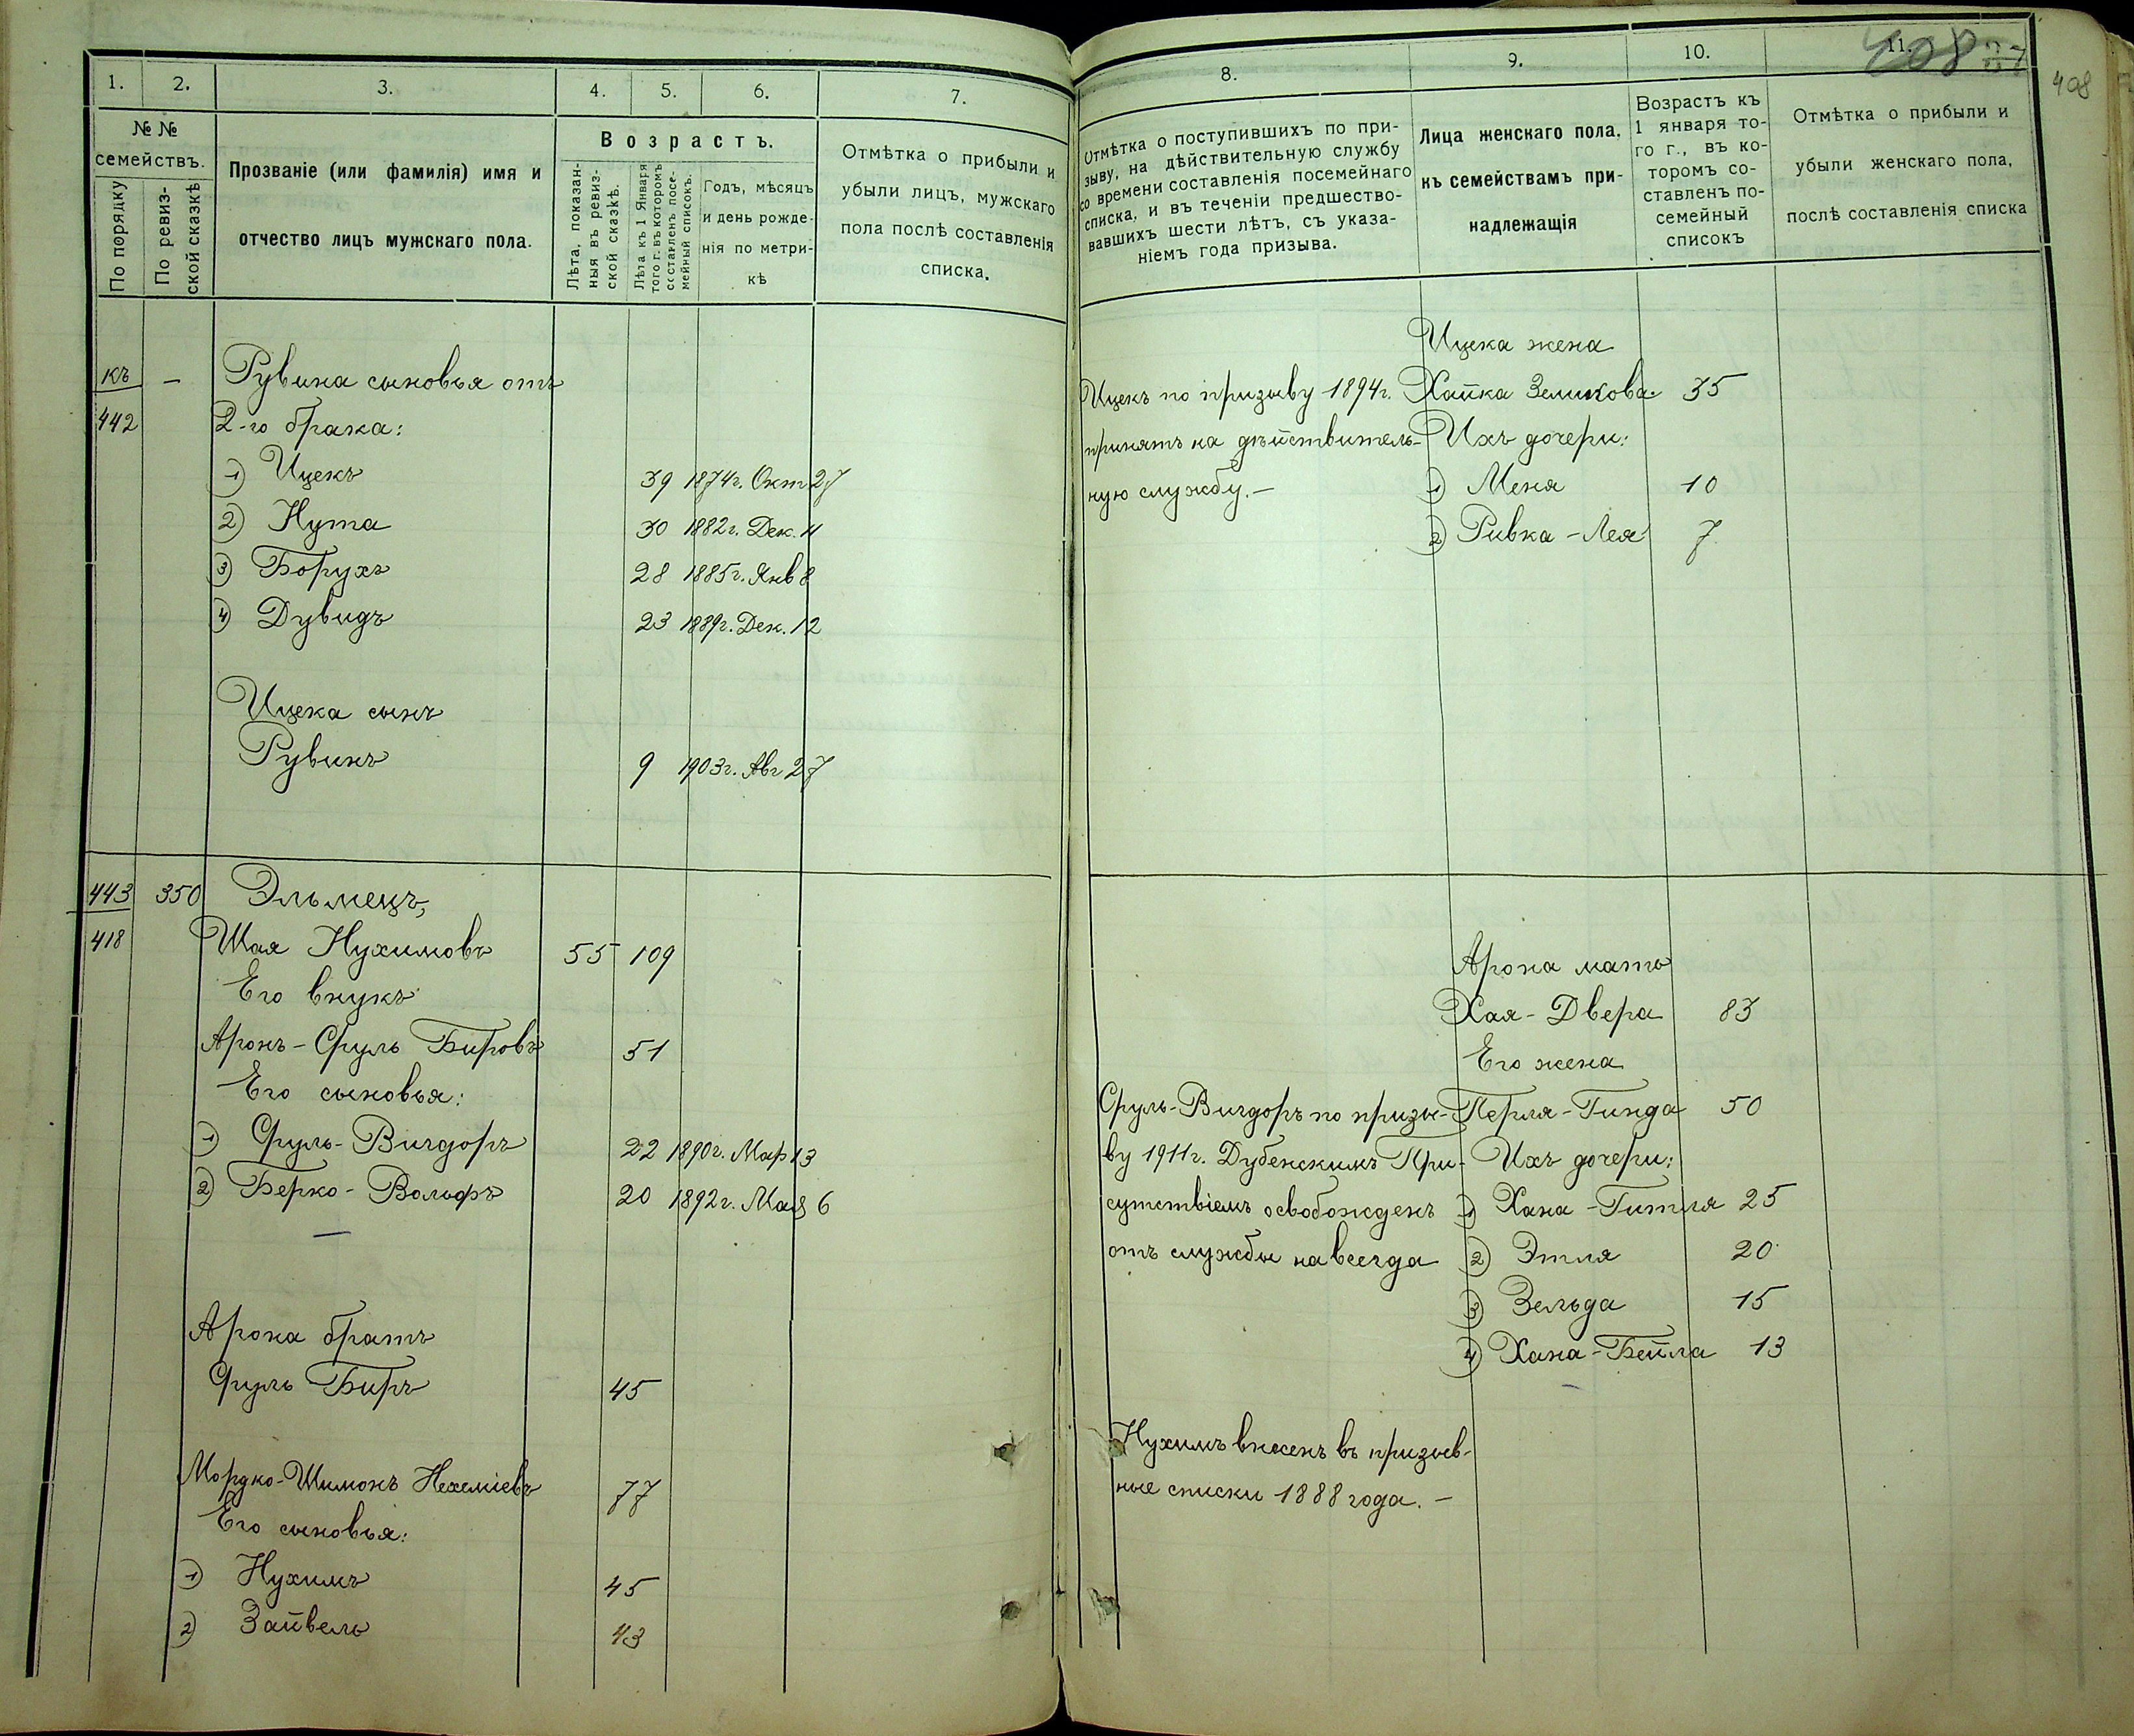 1.
2.
3.
4.
5.
6.
7.
№ №
семействъ.
По порядку
По ревиз-
ской сказкѣ
Прозваніе (или фамилія) имя и
отчество лицъ мужскаго пола.
Возрастъ.
Лѣта, показан-
ныя въ ревиз-
ской сказкѣ.
Лѣта къ 1 Января
того г. въ которомъ
составленъ посе-
мейный списокъ.
Годъ, мѣсяцъ
и день рожде-
нія по метри-
кѣ
Отмѣтка о прибыли и
убыли лицъ, мужскаго
пола послѣ составленія
списка.
къ — Рувина сыновья отъ
442 2-го брака:
1) Ицекъ 39 1874г. Окт 27
2) Нута 30 1882г. Дек. 11
3) Борухъ 28 1885г. Янв 8
4) Дувидъ 23 1889г. Дек. 12
Ицека сынъ
Рувинъ 9 1903г. Авг 27
443 350 Эльмецъ,
418 Шая Нухимовъ 55 109
Его внукъ
Аронъ-Сруль Бировъ 51
Его сыновья:
1) Сруль-Вигдоръ 22 1890г. Мар 13
2) Берко-Вольфъ 20 1892г. Мая 6
Арона братъ
Сруль Биръ 45
Мордко-Шимонъ Нехеміевъ 77
Его сыновья:
1) Нухимъ 45
2) Зайвель 43
8.
9.
10.
11.
408
408
Отмѣтка о поступившихъ по при-
зыву, на дѣйствительную службу
со времени составленія посемейнаго
списка, и въ теченіи предшество-
вавшихъ шести лѣтъ, съ указа-
ніемъ года призыва.
Лица женскаго пола,
къ семействамъ при-
надлежащія
Возрастъ къ
1 января то-
го г., въ ко-
торомъ со-
ставленъ по-
семейный
списокъ
Отмѣтка о прибыли и
убыли женскаго пола,
послѣ составленія списка
Ицека жена
Ицекъ по призыву 1894г. Хайка Зеликова 35
принятъ на дѣйствитель- Ихъ дочери:
ную службу.— 1) Меня 10
2) Ривка-Лея 7
Арона мать
Хая-Двера 83
Его жена
Сруль-Вигдоръ по призы- Перля-Гинда 50
ву 1911г. Дубенскимъ При- Ихъ дочери:
сутствіемъ освобожденъ 1) Хана-Гитля 25
отъ службы навсегда 2) Этля 20
3) Зельда 15
4) Хана-Бейла 13
Нухимъ внесенъ въ призыв-
ные списки 1888 года.—